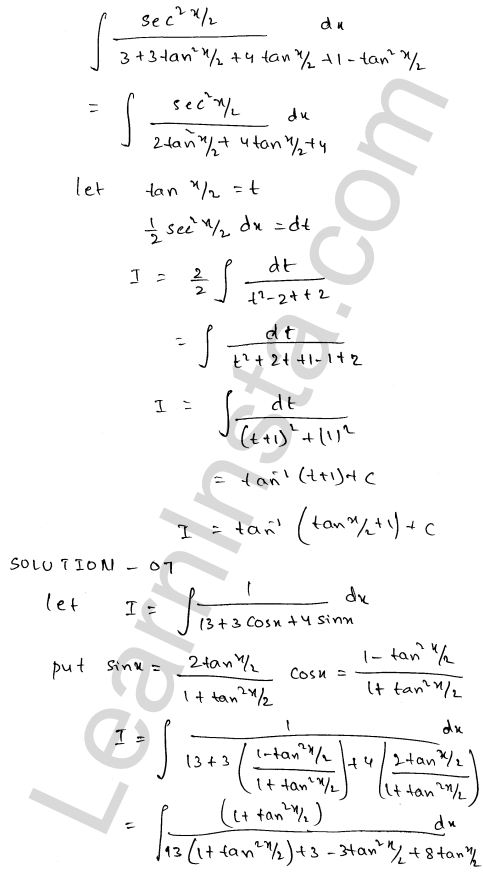 ∫ sec² x/2 / (3 + 3tan² x/2 + 4 tan x/2 + 1 - tan² x/2) dx
= ∫ sec² x/2 / (2tan² x/2 + 4tan x/2 + 4) dx
let tan x/2 = t
1/2 sec² x/2 dx = dt
I = 2/2 ∫ dt / (t² - 2t + 2)
= ∫ dt / (t² + 2t + 1 - 1 + 2)
I = ∫ dt / ((t+1)² + (1)²)
= tan⁻¹ (t+1) + C
I = tan⁻¹ (tan x/2 + 1) + C
SOLUTION - 07
let I = ∫ 1 / (13 + 3 Cosx + 4 sinx) dx
put sinx = 2tan x/2 / (1 + tan² x/2) Cosx = (1 - tan² x/2) / (1 + tan² x/2)
I = ∫ 1 / (13 + 3 ((1 - tan² x/2) / (1 + tan² x/2)) + 4 (2tan x/2 / (1 + tan² x/2))) dx
= ∫ (1 + tan² x/2) / (13 (1 + tan² x/2) + 3 - 3tan² x/2 + 8tan x/2) dx
LearnInsta.com